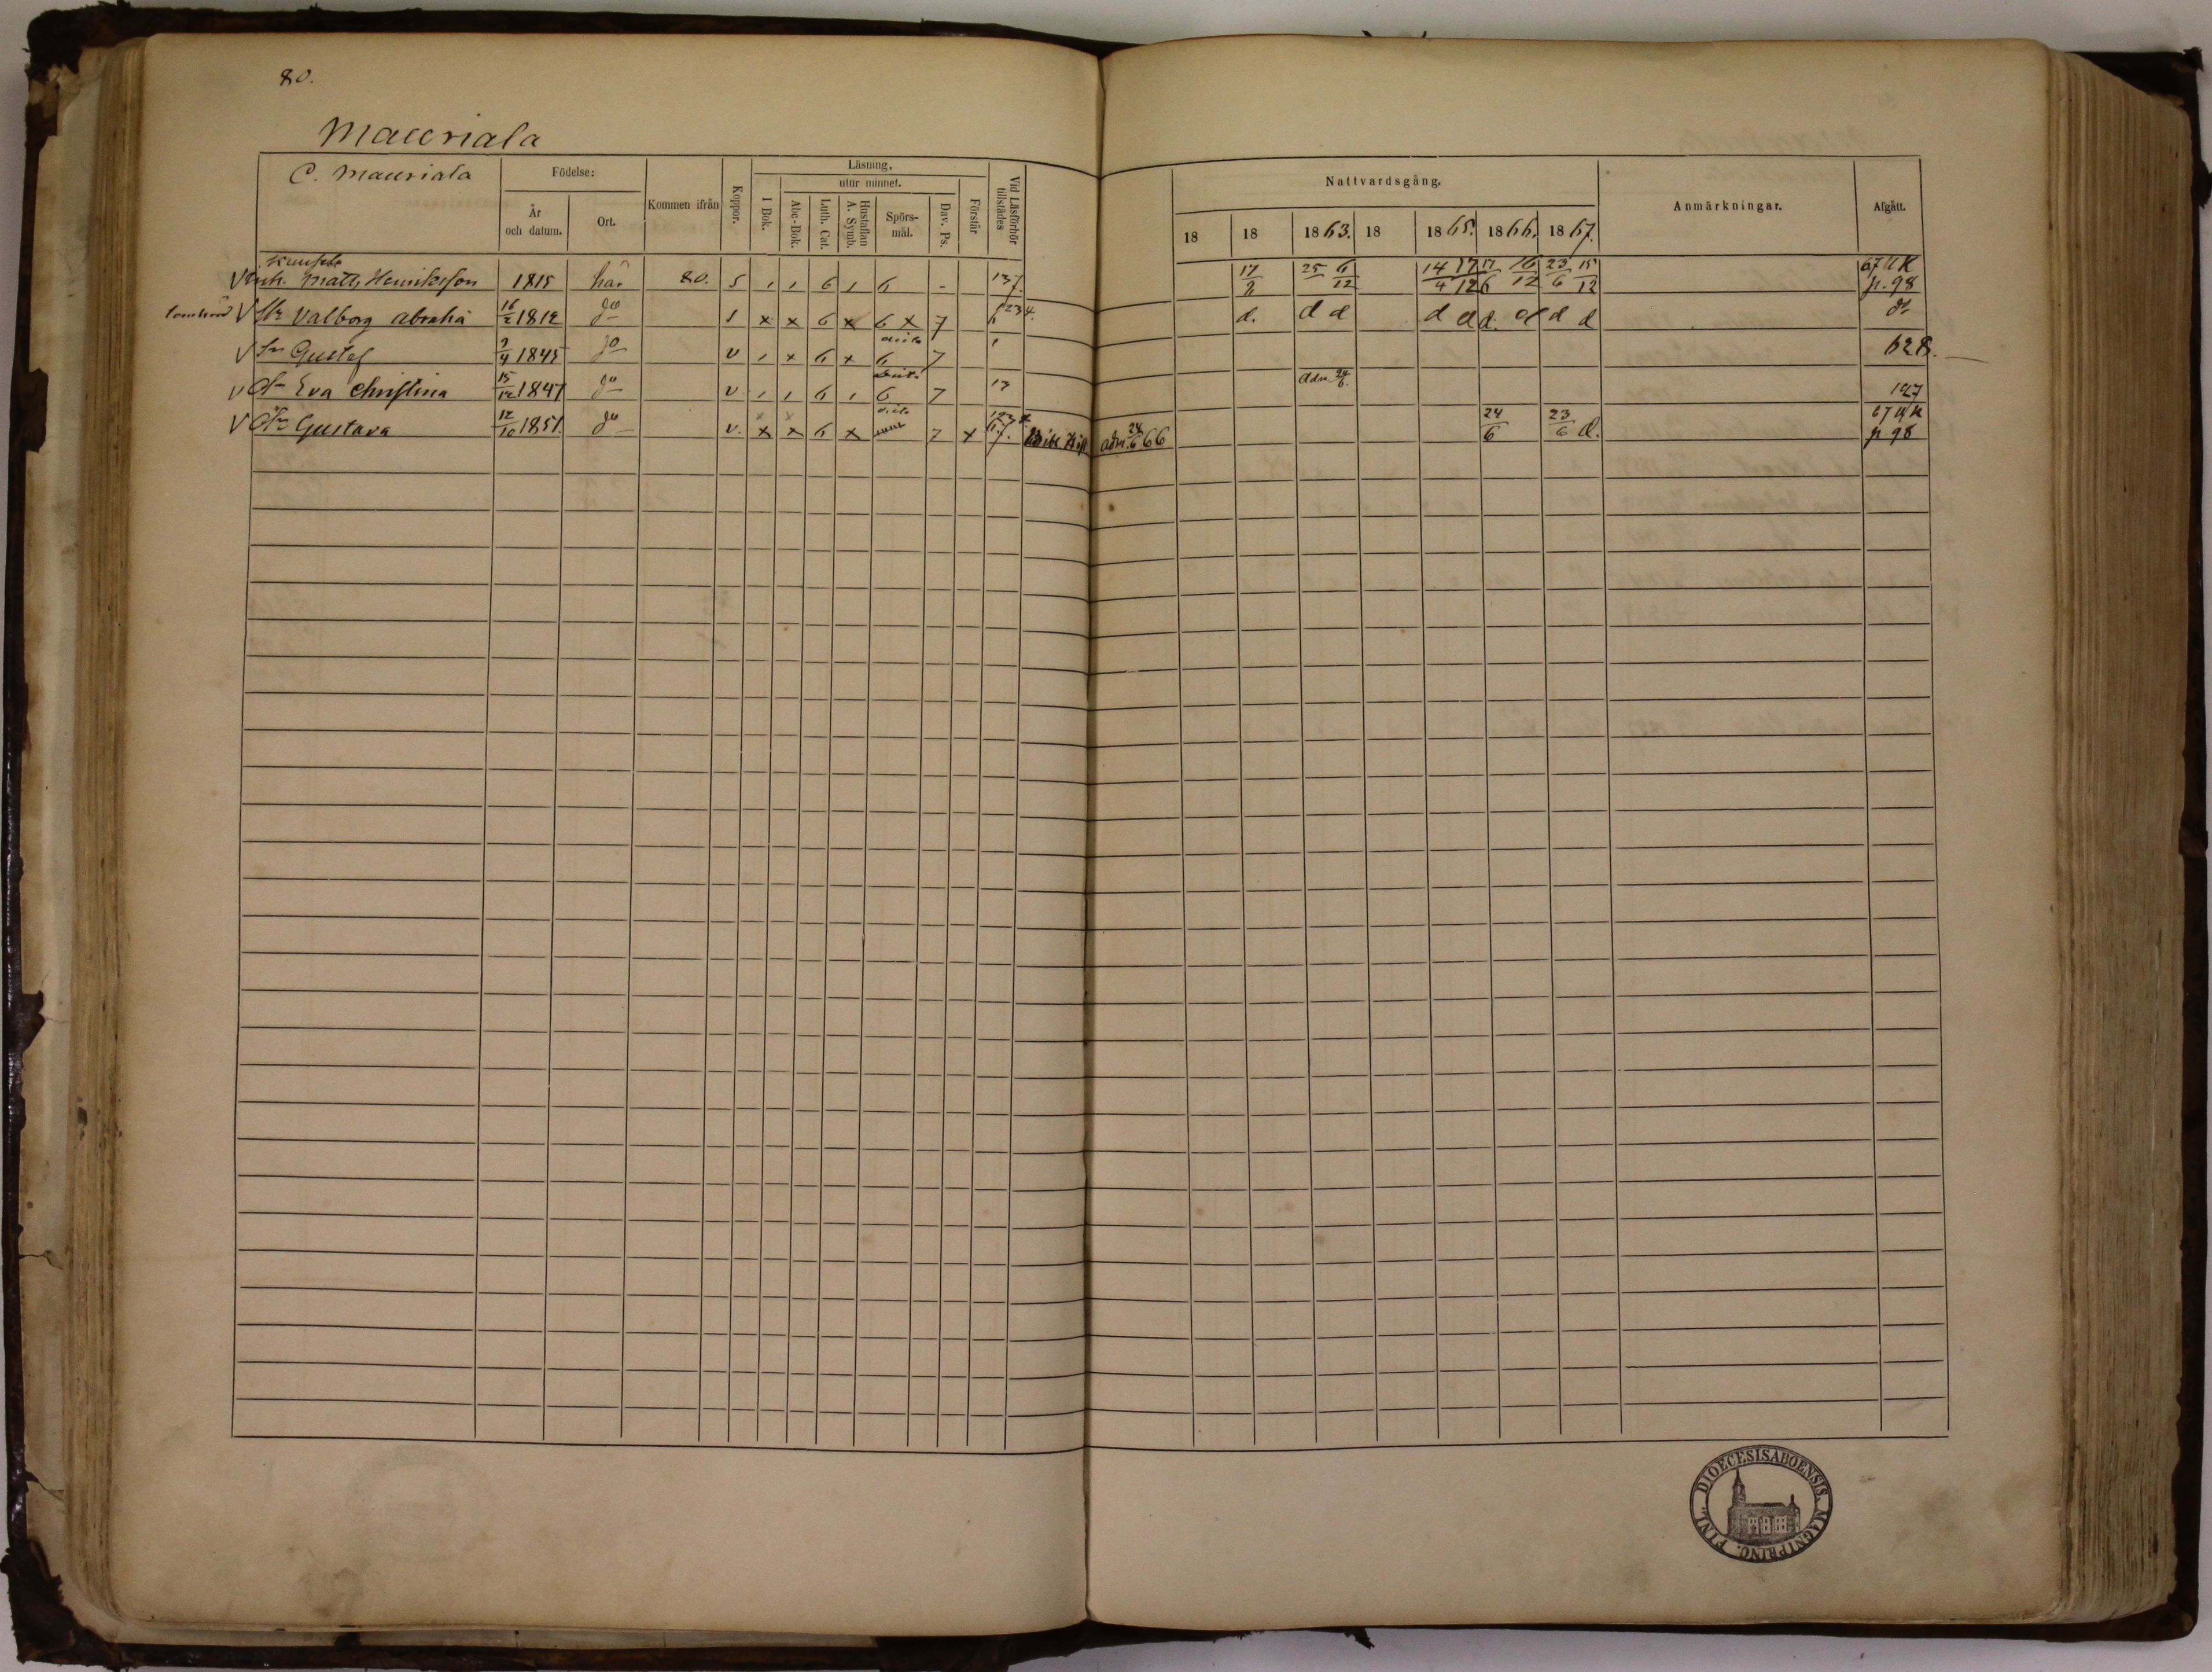 80.
Mauriala
C. Mauriala
Födelse:
År
och datum.
Ort.
Kommen ifrån
Koppor.
Läsning,
I Bok.
utur minnet.
Abc-Bok.
Luth. Cat.
Hustaflan
A. Symb.
Spörs-
mål.
Dav. Ps.
Förstår
Vid Läsförhör
tillstädes
Nattvardsgång.
18 18 1863. 18 1865. 1866. 1867.
Anmärkningar.
Afgått.
V Matts Henriksson 1815 här 80. 5 6 6 - 137. 17 25/ 6/12 14/4 17/12 17/6 16/12 23/6 15/12 67 p. 98
V Valborg Abrah. 16/2 1812 do 1 x x 6 x 6 x 7 d. d d d d d. d d d
V Sn Gustaf 1845 do v x 6 x 6 7 62 8.
V Eva Christina 15/12 1847 do v 6 6 7 13 Adm. 24/6 127
V Gustava 12/10 1851 do v. x x 6 x 7 x adm. 24/6 66 24/6 23/6 d. 67 p 98
DIOECESIS ABOENSIS. MAGNI PRINC. FINL.